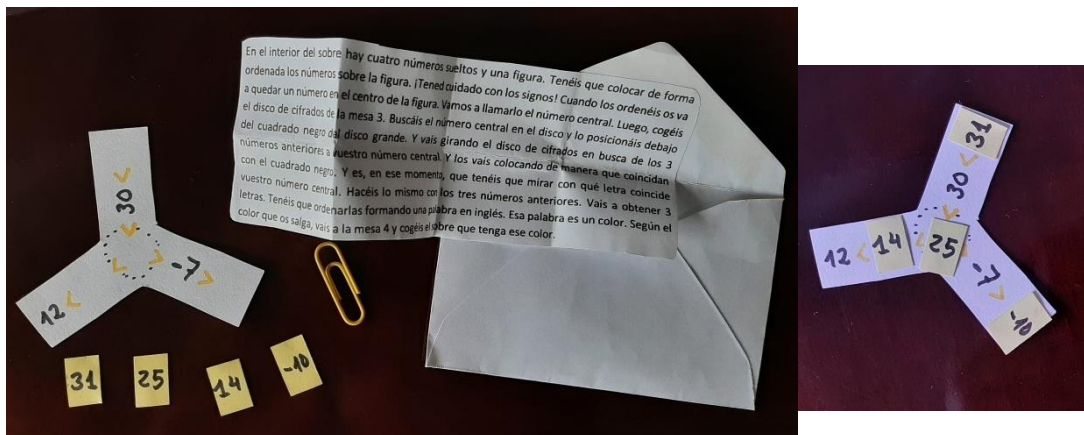 En el interior del sobre hay cuatro números sueltos y una figura. Tenéis que colocar de forma
ordenada los números sobre la figura. ¡Tened cuidado con los signos! Cuando los ordenéis os va
a quedar un número en el centro de la figura. Vamos a llamarlo el número central. Luego, cogéis
el disco de cifrados de la mesa 3. Buscáis el número central en el disco y lo posicionáis debajo
del cuadrado negro del disco grande. Y vais girando el disco de cifrados en busca de los 3
números anteriores a vuestro número central. Y los vais colocando de manera que coincidan
con el cuadrado negro. Y es, en ese momento, que tenéis que mirar con qué letra coincide
vuestro número central. Hacéis lo mismo con los tres números anteriores. Vais a obtener 3
letras. Tenéis que ordenarlas formando una palabra en inglés. Esa palabra es un color. Según el
color que os salga, vais a la mesa 4 y cogéis el sobre que tenga ese color.
30 <
<
< >
12 <
-7 >
31
25
14
-10
31
<
30
<
12 < 14
25
-7
>
-10